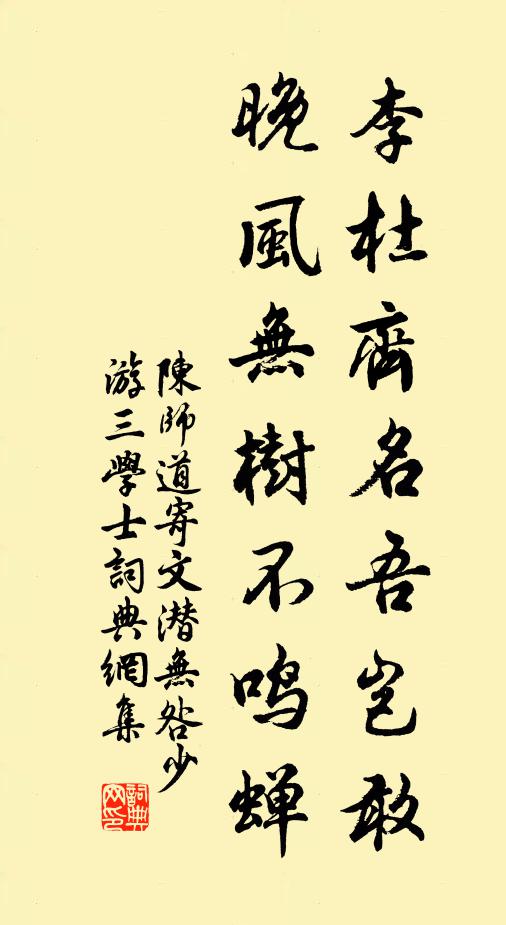 李杜齊名吾豈敢
晚風無樹不鳴蟬
陳師道寄文潜無咎少
游三學士詞典網集
詞典
网印